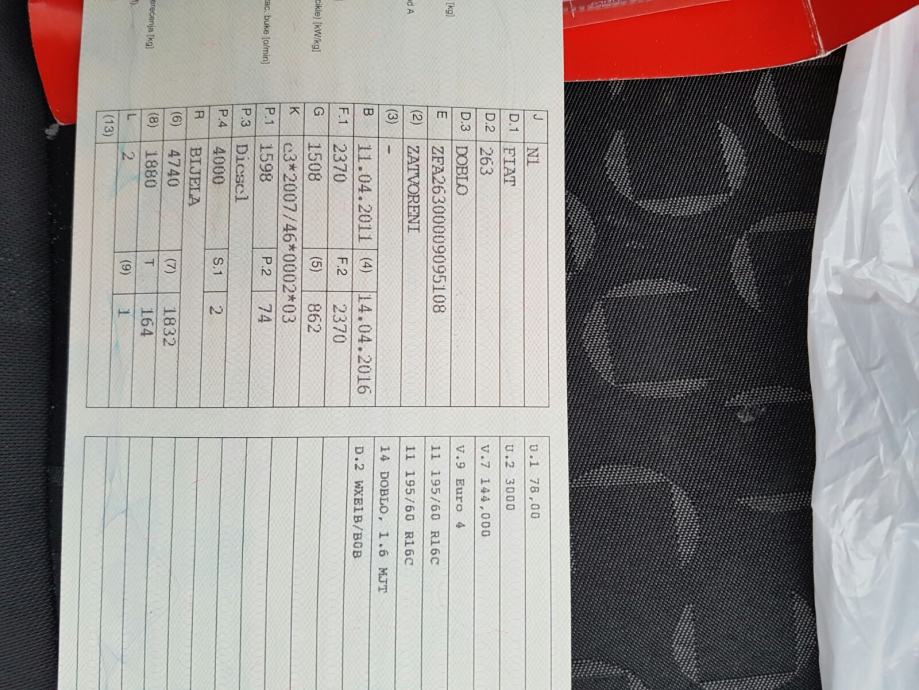 [kg]
d A
cikle) [kW/kg]
ac. buke [o/min]
erećenja [kg]
J N1
D.1 FIAT
D.2 263
D.3 DOBLO
E ZFA26300009095108
(2) ZATVORENI
(3) -
B 11.04.2011 (4) 14.04.2016
F.1 2370 F.2 2370
G 1508 (5) 862
K e3*2007/46*0002*03
P.1 1598 P.2 74
P.3 Diesel
P.4 4000 S.1 2
R BIJELA
(6) 4740 (7) 1832
(8) 1880 T 164
L 2 (9) 1
(13)
U.1 78,00
U.2 3000
V.7 144,000
V.9 Euro 4
11 195/60 R16C
11 195/60 R16C
14 DOBLO, 1.6 MJT
D.2 WXB1B/B0B